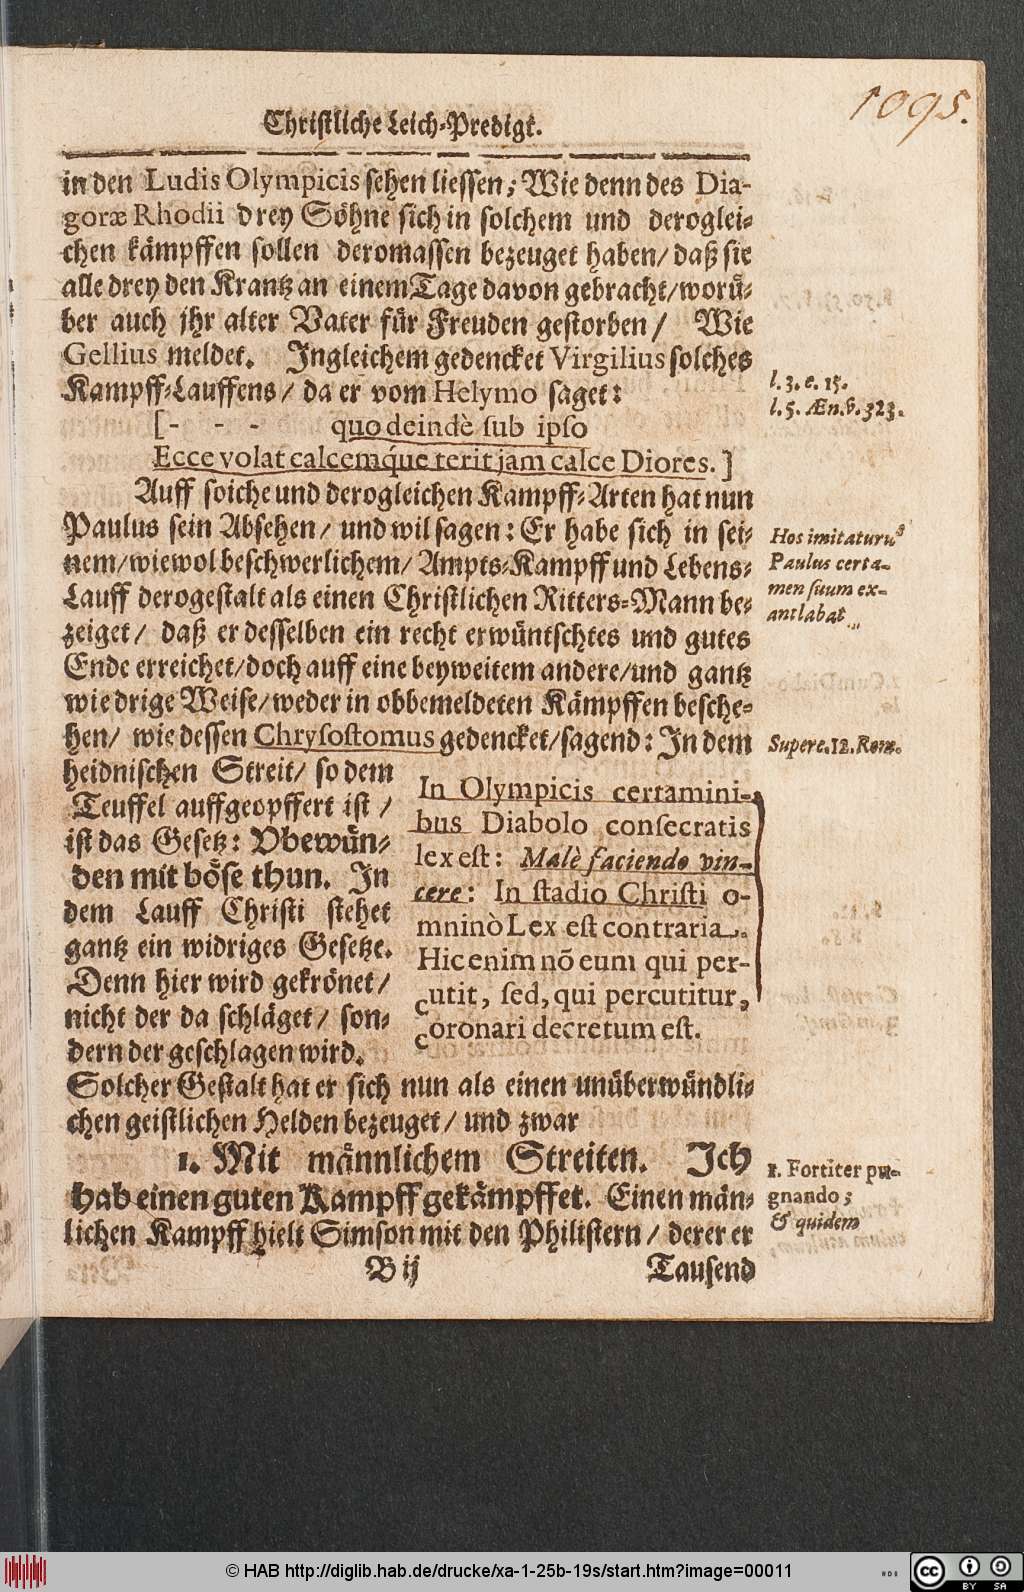 1095.
Christliche Leich-Predigt.
in den Ludis Olympicis sehen liessen; Wie denn des Dia-
goræ Rhodii drey Söhne sich in solchem und deroglei-
chen kämpffen sollen deromassen bezeuget haben/ daß sie
alle drey den Krantz an einem Tage davon gebracht/ worü-
ber auch jhr alter Vater für Freuden gestorben/ Wie
Gellius meldet. Ingleichem gedencket Virgilius solches
Kampff-Lauffens/ da er vom Helymo saget:
l. 3. c. 15.
l. 5. Æn. v. 323.
[- - - quo deindè sub ipso
Ecce volat calcemque terit jam calce Diores.]
Auff solche und derogleichen Kampff-Arten hat nun
Paulus sein Absehen/ und wil sagen: Er habe sich in sei-
nem/ wiewol beschwerlichem/ Ampts-Kampff und Lebens-
Lauff derogestalt als einen Christlichen Ritters-Mann be-
zeiget/ daß er desselben ein recht erwüntschtes und gutes
Ende erreichet/ doch auff eine beyweitem andere/ und gantz
wiedrige Weise/ weder in obbemeldeten Kämpffen besche-
hen/ wie dessen Chrysostomus gedencket/ sagend: In dem
Hos imitaturus
Paulus certa-
men suum ex-
antlabat
Super c. 12. Rom.
heidnischen Streit/ so dem
Teuffel auffgeopffert ist/
ist das Gesetz: Vbewün-
den mit böse thun. In
dem Lauff Christi stehet
gantz ein widriges Gesetze.
Denn hier wird gekrönet/
nicht der da schläget/ son-
dern der geschlagen wird.
In Olympicis certamini-
bus Diabolo consecratis
lex est: Malè faciendo vin-
cere: In stadio Christi o-
mninò Lex est contraria.
Hic enim nõ eum qui per-
cutit, sed, qui percutitur,
coronari decretum est.
Solcher Gestalt hat er sich nun als einen unüberwündli-
chen geistlichen Helden bezeuget/ und zwar
1. Mit männlichem Streiten. Ich
hab einen guten Kampff gekämpffet. Einen män-
lichen Kampff hielt Simson mit den Philistern/ derer er
1. Fortiter pu-
gnando;
& quidem
B ij
Tausend
© HAB http://diglib.hab.de/drucke/xa-1-25b-19s/start.htm?image=00011
cc
BY SA